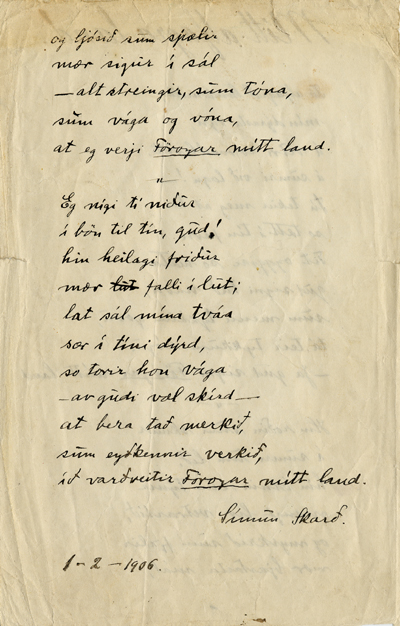 og ljósið sum spælir
mær sigur í sál
— alt streingir, sum tóna,
sum vága og vóna,
at eg verji Føroyar mítt land.
— " —
Eg nígi tí niður
í bøn til tín, gud!
hin heilagi friður
mær lut falli í lut;
lat sál mína tváa
sær í tíni dýrd,
so torir hon vága
— av gudi væl skírd —
at bera tað merkið,
sum eyðkennir verkið,
ið varðveitir Føroyar mítt land.
Símun Skarð.
1 - 2 - 1906.